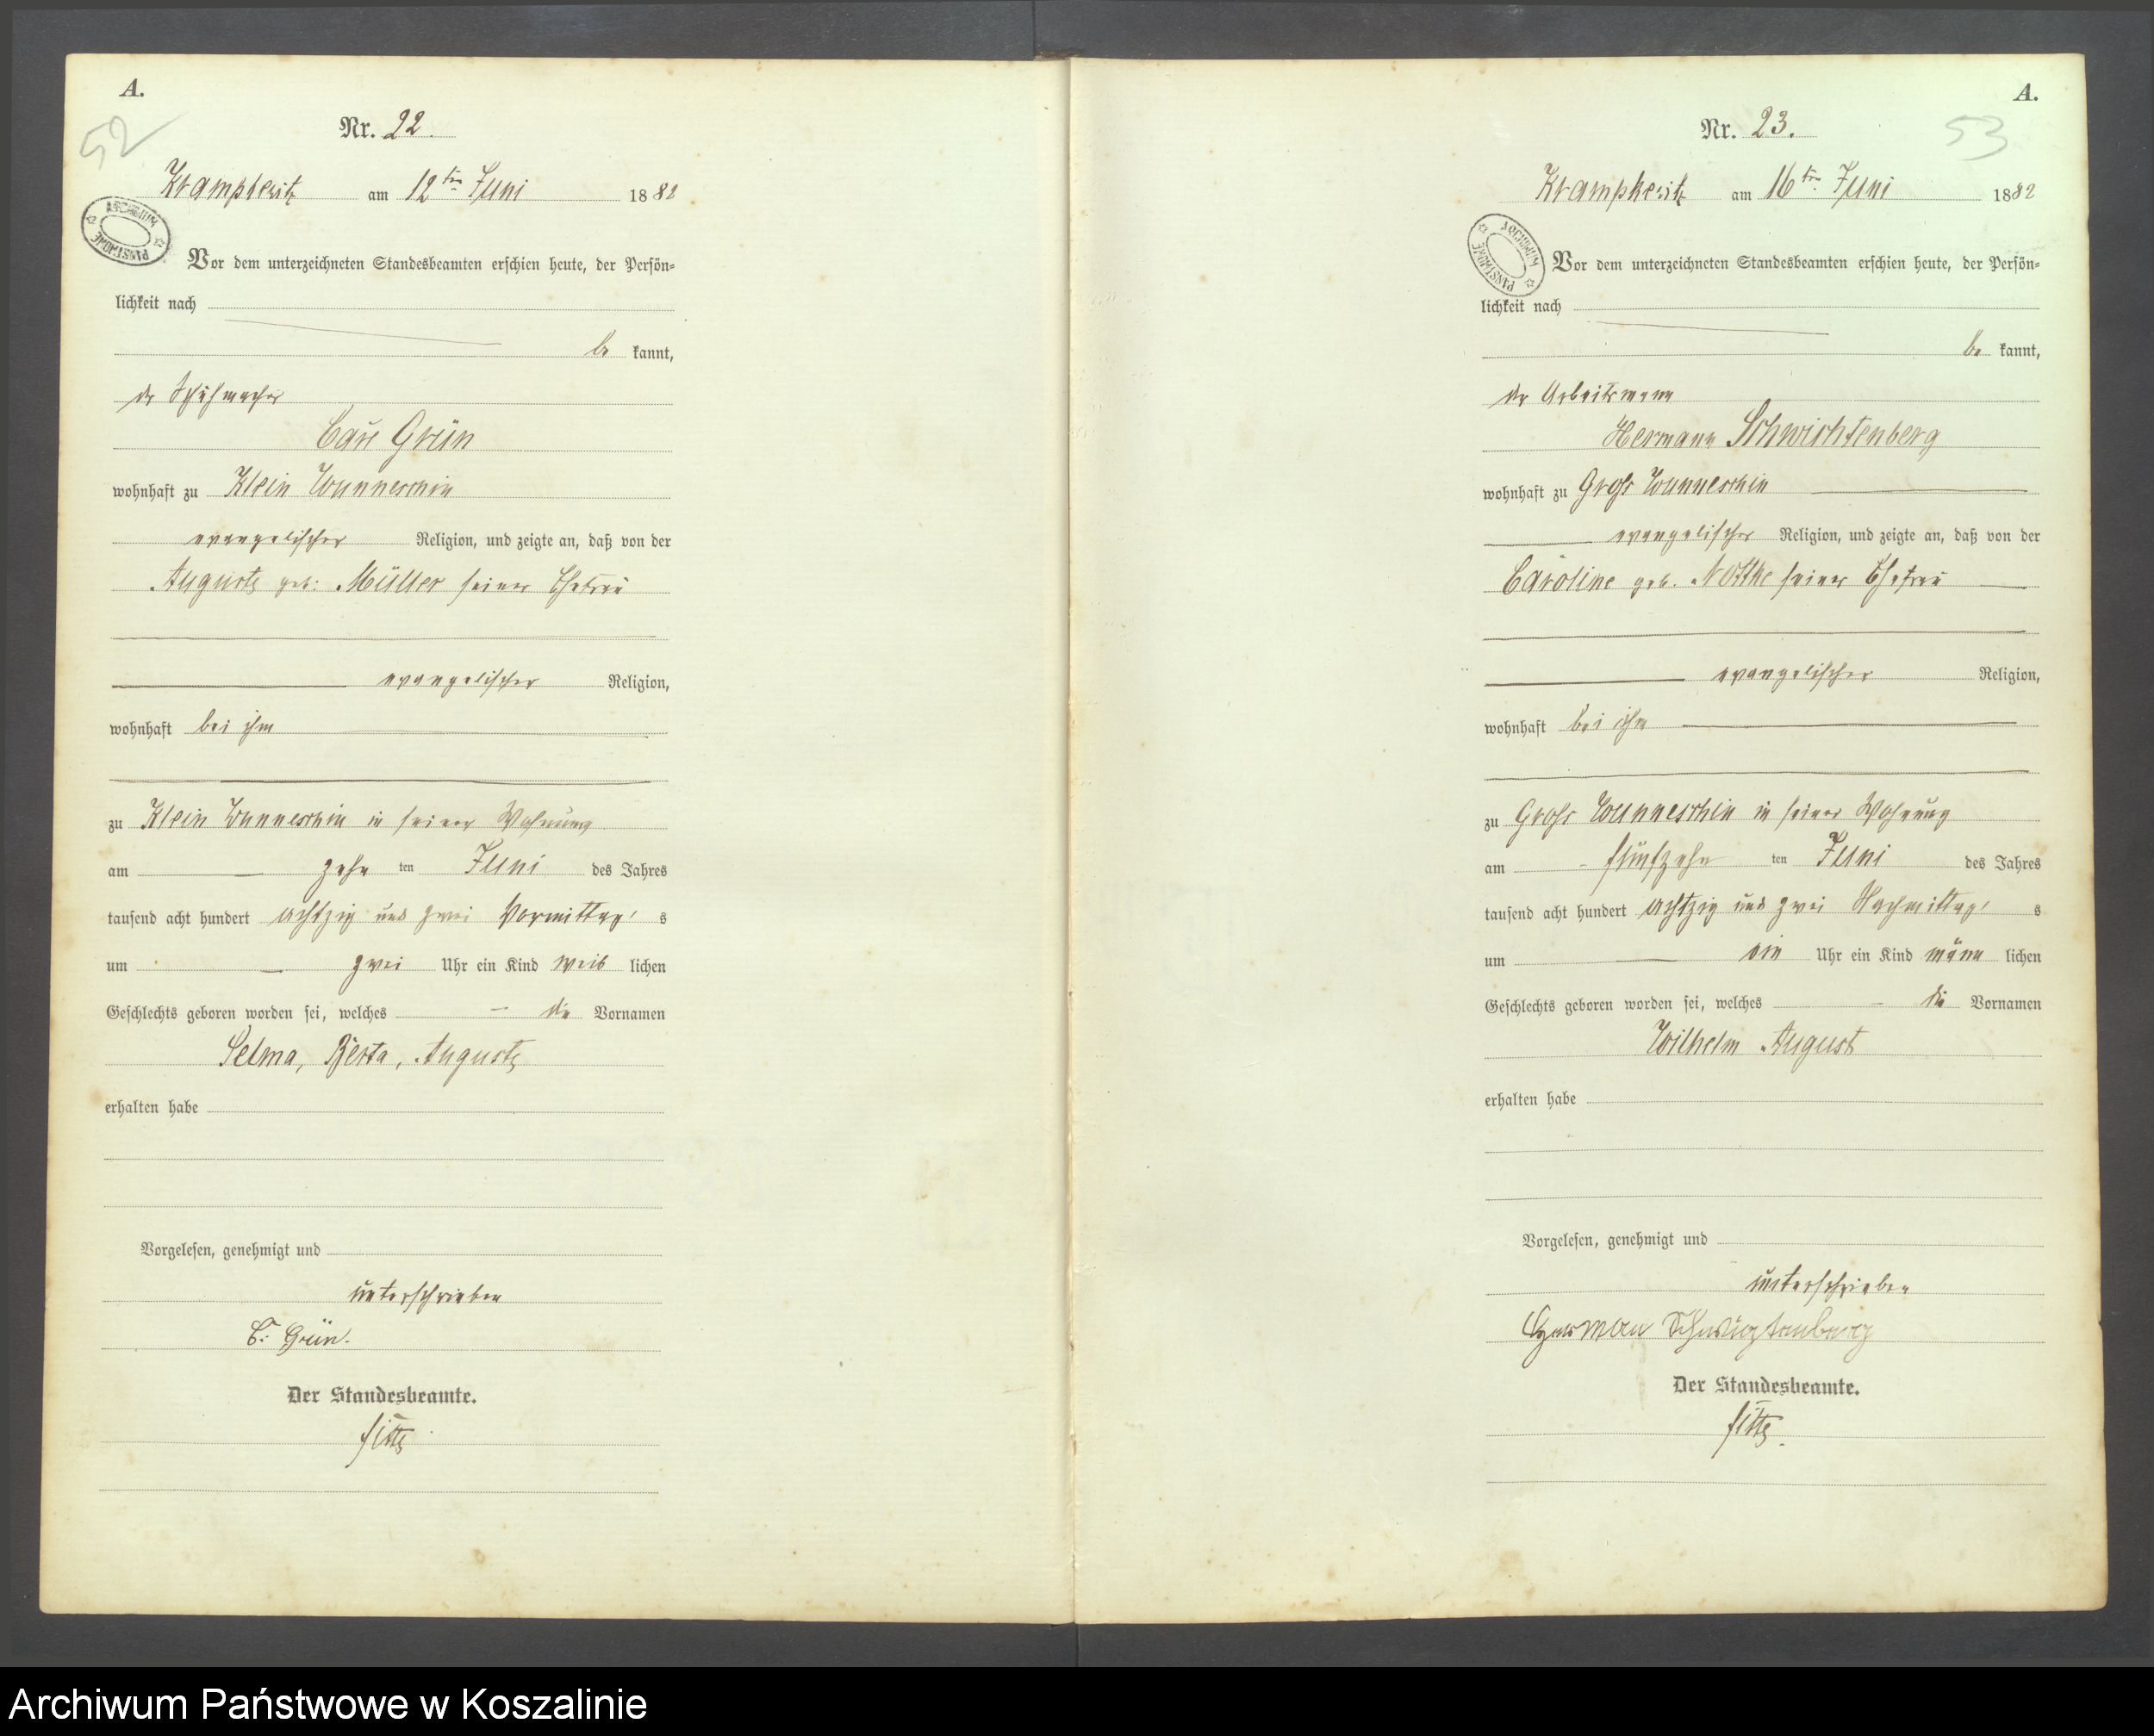 A.
Nr. 22.
52
Krampkewitz am 12ten Juni 1882
ARCHIWUM PAŃSTWOWE
Vor dem unterzeichneten Standesbeamten erschien heute, der Persön=
lichkeit nach
be kannt,
der Schuhmacher
Carl Grün
wohnhaft zu Klein Wunneschin
evangelischer Religion, und zeigte an, daß von der
Auguste geb: Müller seiner Ehefrau
evangelischer Religion,
wohnhaft bei ihm
zu Klein Wunneschin in seiner Wohnung
am zehn ten Juni des Jahres
tausend acht hundert achtzig und zwei Vormittag s
um zwei Uhr ein Kind weib lichen
Geschlechts geboren worden sei, welches die Vornamen
Selma, Berta, Auguste
erhalten habe
Vorgelesen, genehmigt und
unterschrieben
C. Grün.
Der Standesbeamte.
A.
Nr. 23.
53
Krampkewitz am 16ten Juni 1882
ARCHIWUM PAŃSTWOWE
Vor dem unterzeichneten Standesbeamten erschien heute, der Persön=
lichkeit nach
be kannt,
der Arbeitsmann
Hermann Schwichtenberg
wohnhaft zu Groß Wunneschin
evangelischer Religion, und zeigte an, daß von der
Caroline geb. Nottke seiner Ehefrau
evangelischer Religion,
wohnhaft bei ihm
zu Groß Wunneschin in seiner Wohnung
am fünfzehn ten Juni des Jahres
tausend acht hundert achtzig und zwei Nachmittag s
um ein Uhr ein Kind männ lichen
Geschlechts geboren worden sei, welches die Vornamen
Wilhelm August
erhalten habe
Vorgelesen, genehmigt und
unterschrieben
Herman Schwichtenberg
Der Standesbeamte.
Archiwum Państwowe w Koszalinie